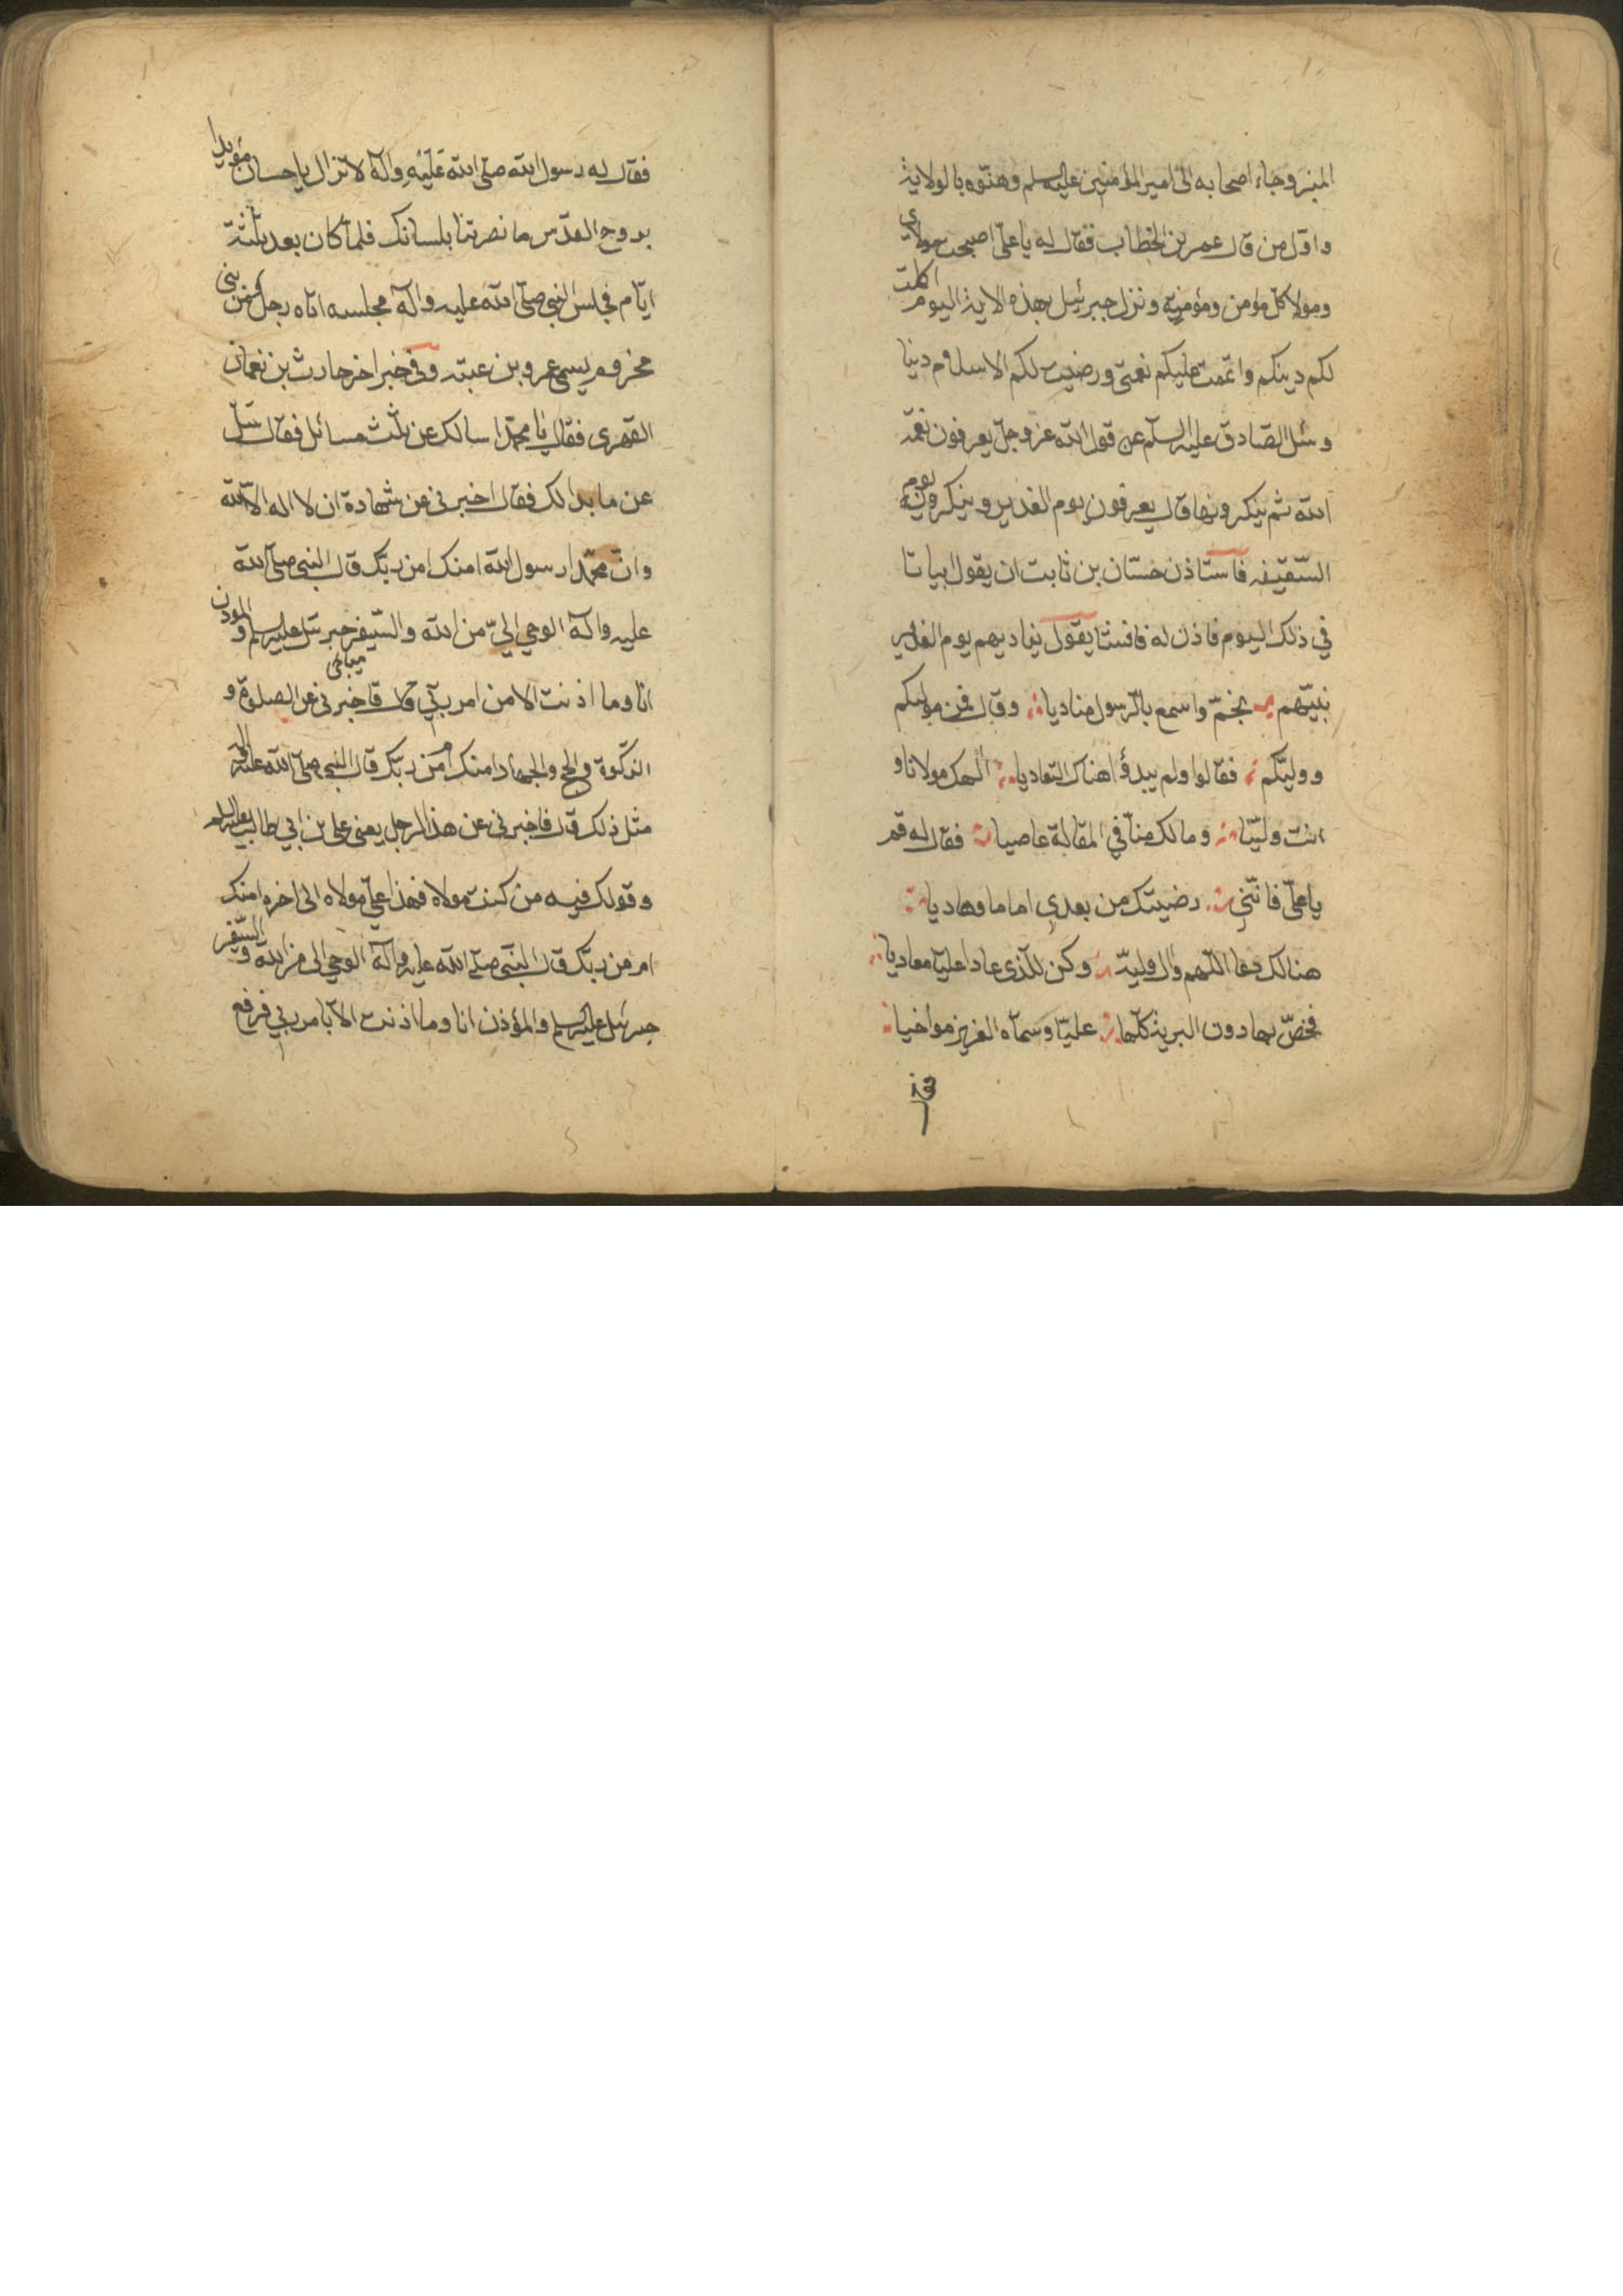 المنبر وجاء اصحابه الى امير المؤمنين عليه السلم وهنّوه بالولاية
واوّل من قال عمر بن الخطاب فقال له يا علىّ اصبحت مولاى
ومولا كل مؤمن ومؤمنة ونزل جبرئيل بهذه الاية اليوم اكملت
لكم دينكم واتممت عليكم نعمتى ورضيت لكم الاسلام دينا
وسئل الصّادق عليه السلم عن قول الله عزوجل يعرفون نعمة
الله ثم ينكرونها قال يعرفون يوم الغدير وينكرونه يوم
السّقيفه فاستاذن حسّان بن ثابت ان يقول ابياتا
في ذلك اليوم فاذن له فانشا يقول يناديهم يوم الغدير
نبيّهم بخمّ واسمع بالرسول مناديا وقال فمن موليكم
ووليّكم فقالوا ولم يبدؤا هناك التعاديا الهك مولانا و
انت وليّنا وما لك منّا في المقالة عاصيا فقال له قم
يا علىّ فانّني رضيتك من بعدي اماما وهاديا
هنالك دعا اللّهم وال وليّه وكن للذى عادا عليا معاديا
فخصّ بها دون البرية كلّها عليّا وسمّاه الغرير مواخيا
فقال له رسول الله صلّى الله عَلَيْهِ وآله لا تزال يا حسان مؤيدا
بروح القدس ما نصرتنا بلسانك فلما كان بعد ثلثة
ايّام في جلس النبي صلّى الله عليه وآله مجلسه اتاه رجل من بنى
مخزوم يسمى عمرو بن عتبه وفى خبر اخر حارث بن نعمان
الفهرى فقال يا محمّد اسالك عن ثلث مسائل فقال سل
عن ما بدا لك فقال اخبرنى عن شهادة ان لا اله الا الله
وانّ محمّدا رسول الله امنك ام من ربّك قال النبي صلى الله
عليه وآله الوحي اليّ من الله والسّفير جبرئيل عليه السلم والموذن
انا وما اذنت الا من امر ربّي قال فاخبرنى عن الصلوة و
الزكوة والحج والجهاد امنك ام من ربّك قال النبي صلّى الله عليه واله
مثل ذلك قال فاخبرنى عن هذا الرجل يعنى على بن ابي طالب عليه السلم
وقولك فيه من كنت مولاه فهذا علىّ مولاه الى اخره امنك
ام من ربّك قال النبّى صلّى الله عليه وآله الوحي الى من الله والسّفير
جبرئيل عليه السلم والمؤذن انا وما اذنت الّا بامر ربي فرفع